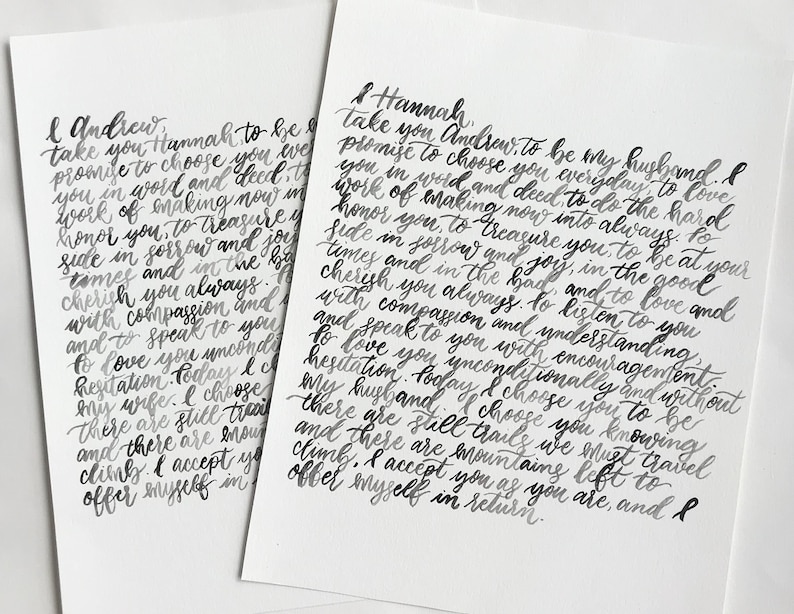 I Andrew,
take you Hannah, to be
promise to choose you
you in word and deed,
work of making now in
honor you, to treasure
side in sorrow and joy
times and in the
cherish you always.
with compassion and
and to speak to you
To love you
hesitation. Today I
my wife. I choose
there are still
and there are
climb. I accept
offer myself in
I Hannah,
take you Andrew, to be my husband. I
promise to choose you everyday, to love
you in word and deed, to do the hard
work of making now into always. To
honor you, to treasure you, to be at your
side in sorrow and joy, in the good
times and in the bad, and to love and
cherish you always. To listen to you
with compassion and understanding,
and speak to you with encouragement.
To love you unconditionally and without
hesitation. Today I choose you to be
my husband. I choose you knowing
there are still trails we must travel
and there are mountains left to
climb. I accept you as you are, and I
offer myself in return.